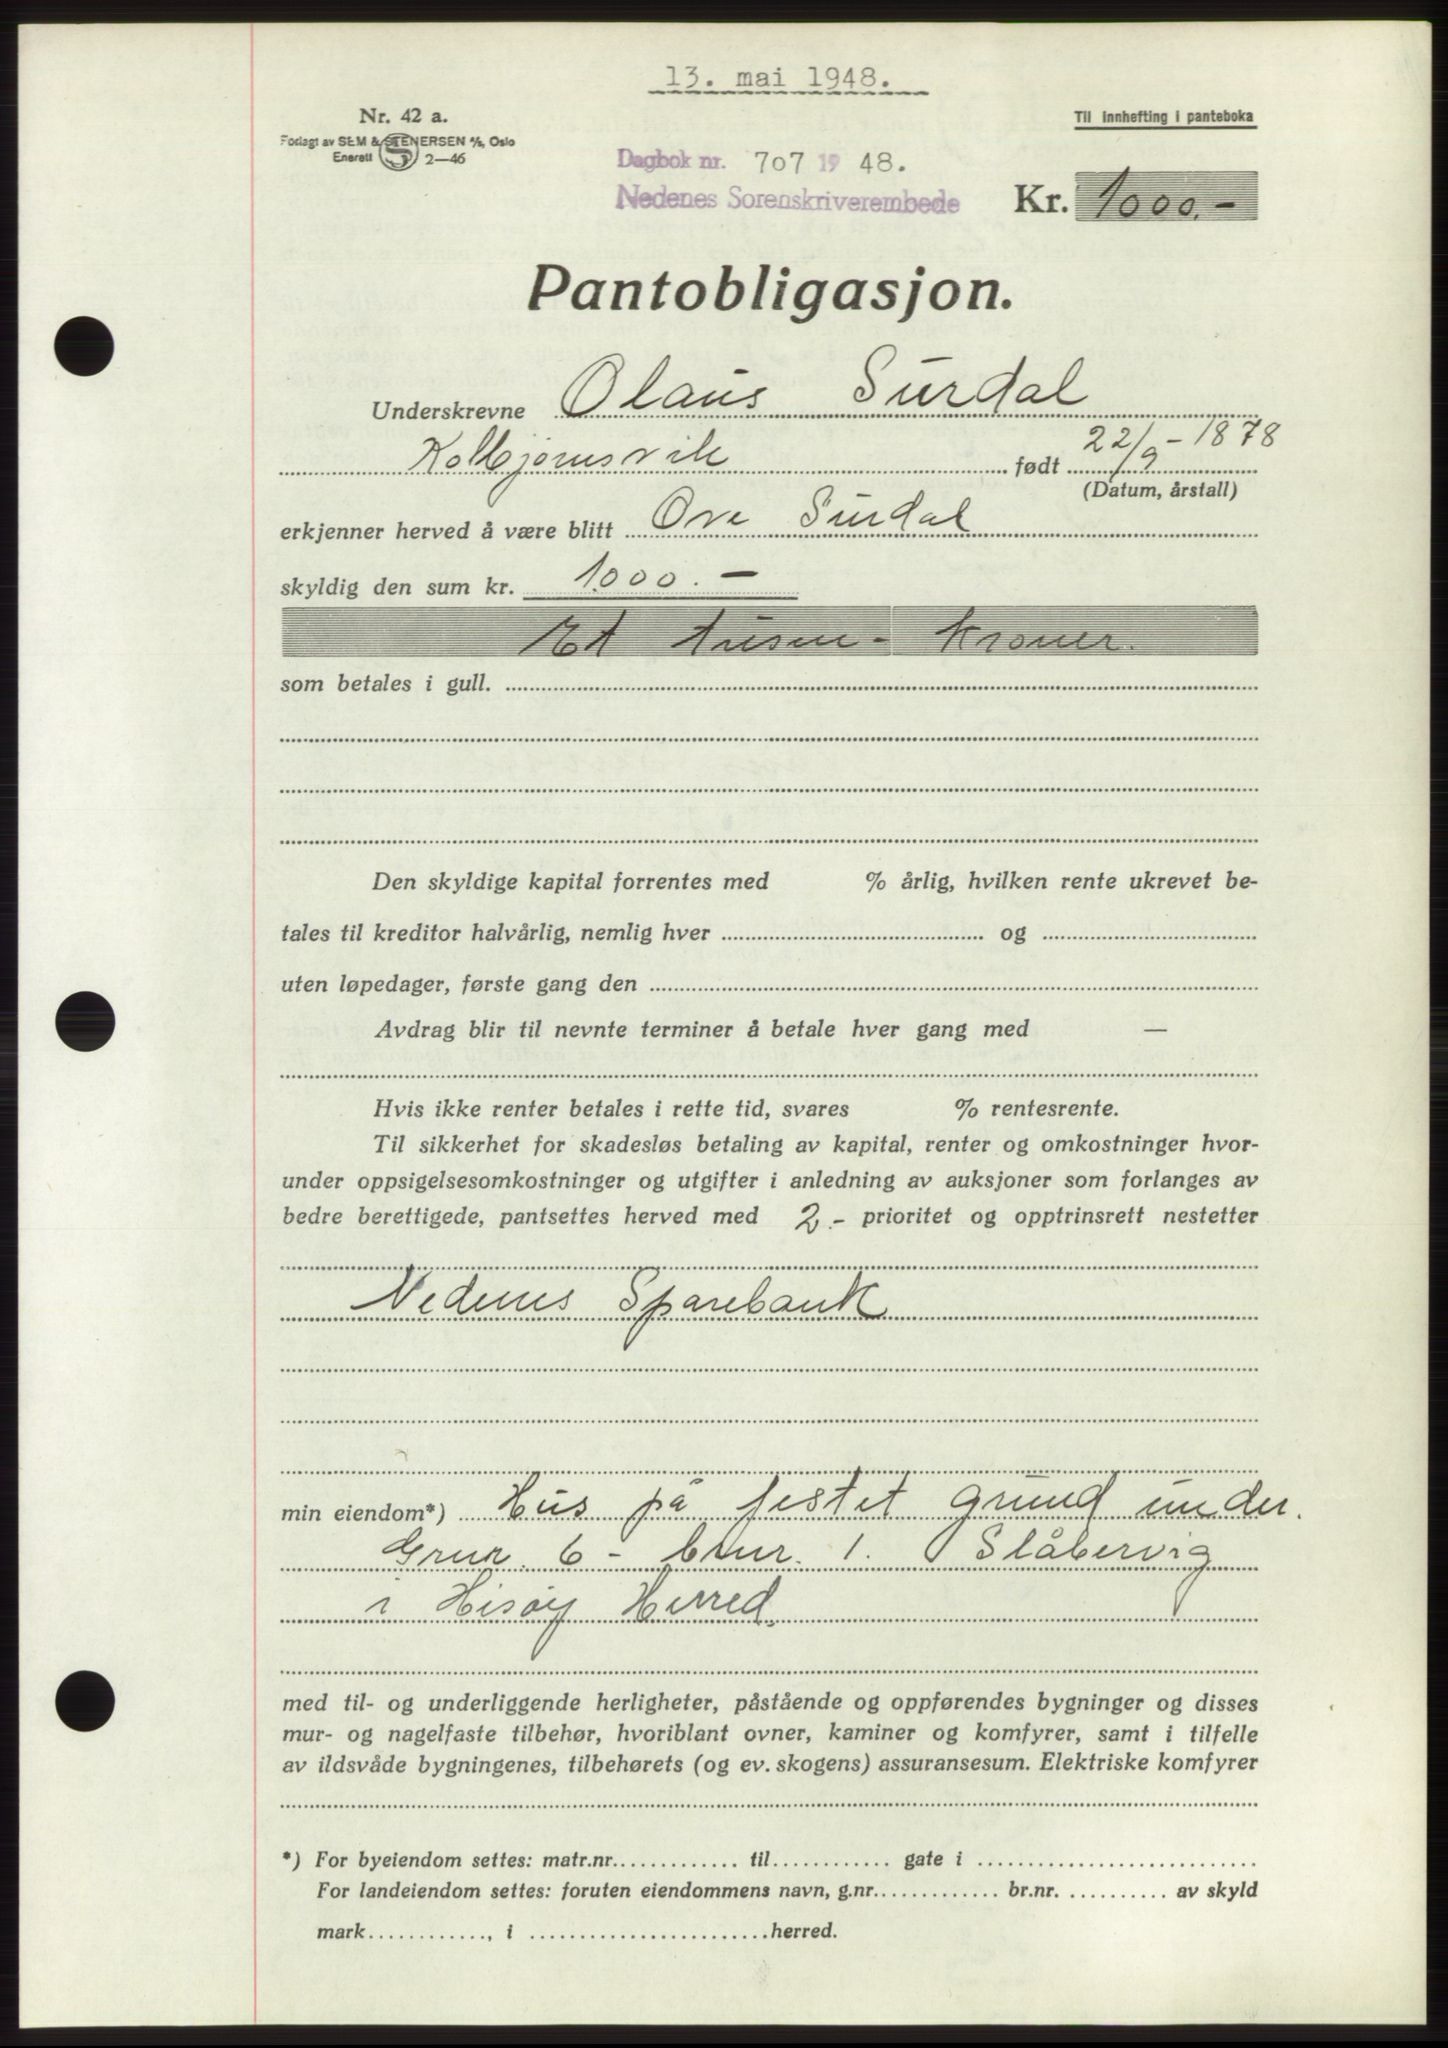 13. mai 1948.
Nr. 42 a.
Forlagt av SEM & STENERSEN A/S, Oslo
Enerett 2—46
Til innhefting i panteboka
Dagbok nr. 707 19 48.
Nedenes Sorenskriverembede
Kr. 1000.-
Pantobligasjon.
Underskrevne Olaus Surdal
Kolbjørnsvik født 22/9-1878
(Datum, årstall)
erkjenner herved å være blitt Ove Surdal
skyldig den sum kr. 1000.-
Et tusen- Kroner.
som betales i gull.
Den skyldige kapital forrentes med % årlig, hvilken rente ukrevet be-
tales til kreditor halvårlig, nemlig hver og
uten løpedager, første gang den
Avdrag blir til nevnte terminer å betale hver gang med —
Hvis ikke renter betales i rette tid, svares % rentesrente.
Til sikkerhet for skadesløs betaling av kapital, renter og omkostninger hvor-
under oppsigelsesomkostninger og utgifter i anledning av auksjoner som forlanges av
bedre berettigede, pantsettes herved med 2.- prioritet og opptrinsrett nestetter
Nedenes Sparebank
min eiendom*) Hus på festet grund under.
Grnr. 6 - brnr. 1. Slåbervig
i Hisøy Herred.
med til- og underliggende herligheter, påstående og oppførendes bygninger og disses
mur- og nagelfaste tilbehør, hvoriblant ovner, kaminer og komfyrer, samt i tilfelle
av ildsvåde bygningenes, tilbehørets (og ev. skogens) assuransesum. Elektriske komfyrer
*) For byeiendom settes: matr.nr. til gate i
For landeiendom settes: foruten eiendommens navn, g.nr. br.nr. av skyld
mark , i herred.